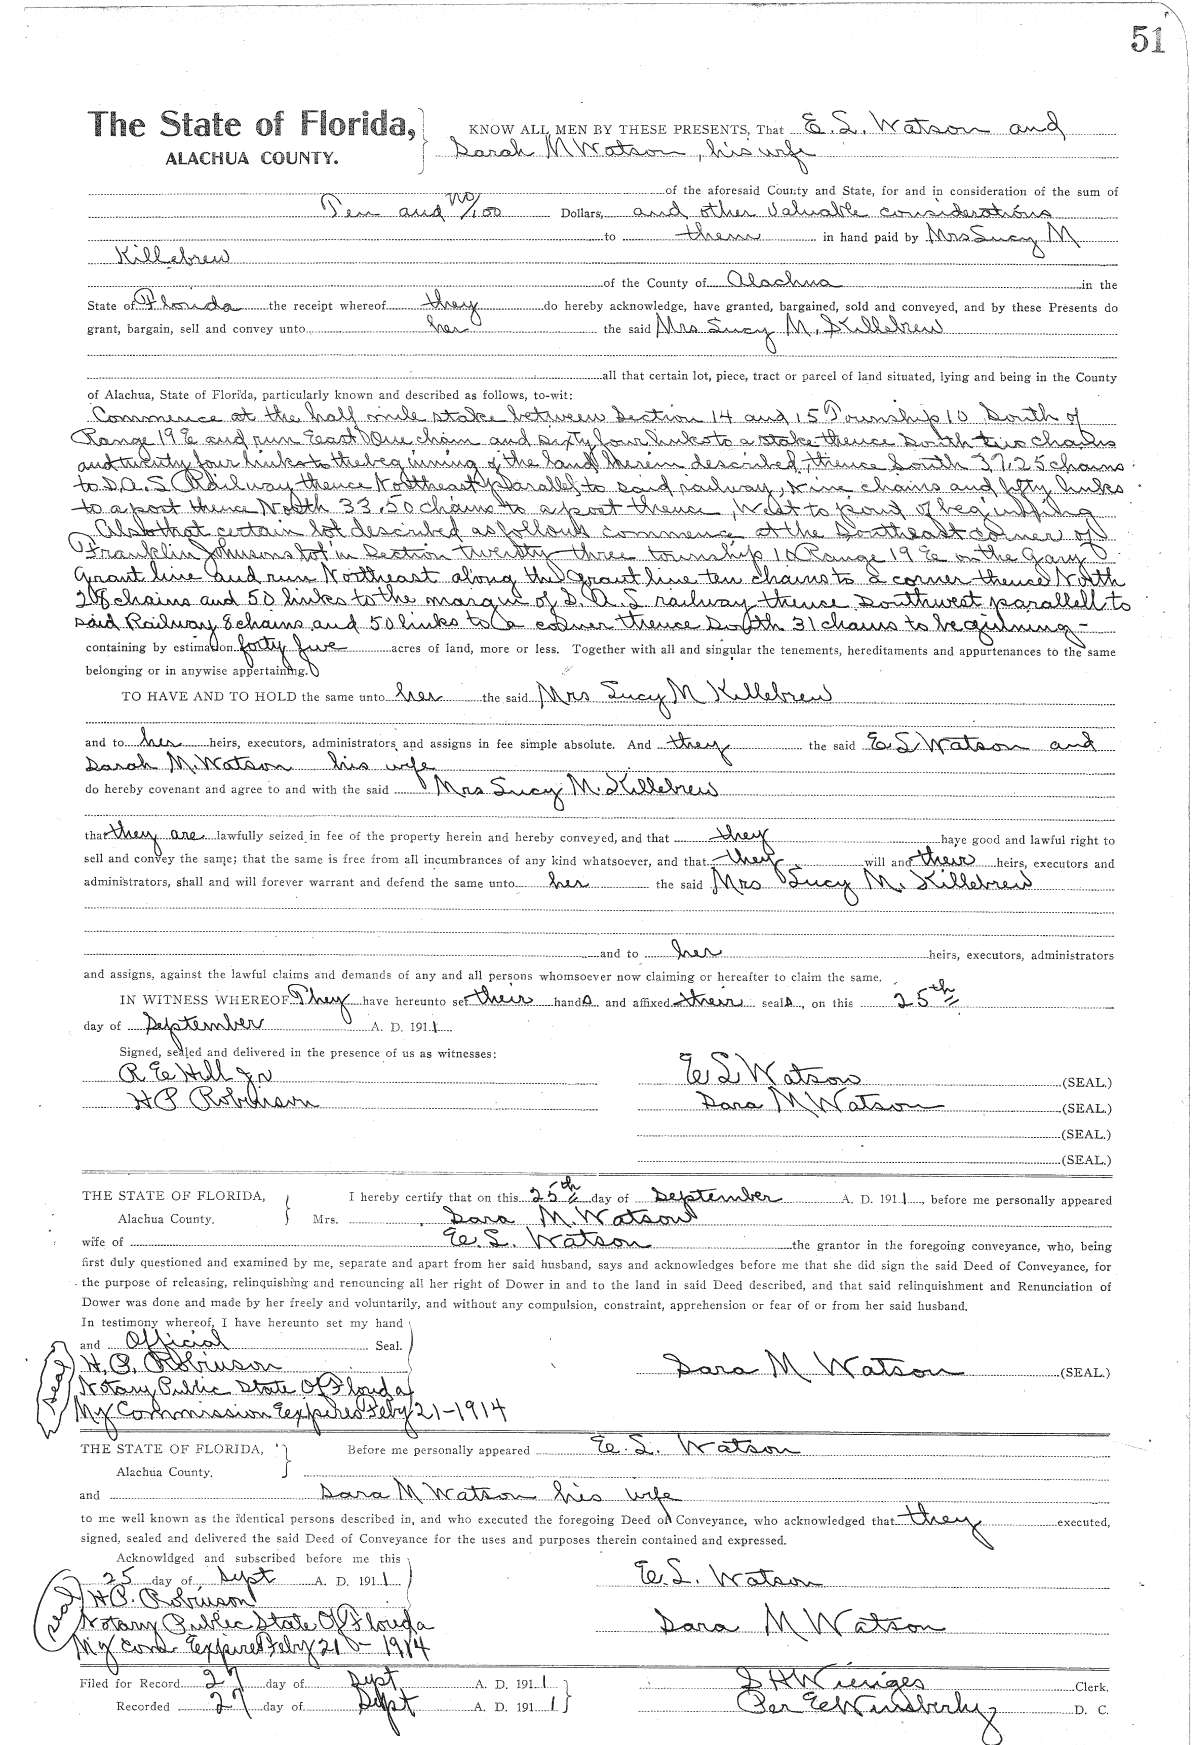 51
The State of Florida, KNOW ALL MEN BY THESE PRESENTS, That E. S. Watson and
ALACHUA COUNTY. Sarah M Watson, his wife
of the aforesaid County and State, for and in consideration of the sum of
Ten and no/100 Dollars, and other valuable considerations
to them in hand paid by Mrs Lucy M
Killebrew
of the County of Alachua in the
State of Florida the receipt whereof they do hereby acknowledge, have granted, bargained, sold and conveyed, and by these Presents do
grant, bargain, sell and convey unto her the said Mrs Lucy M. Killebrew
all that certain lot, piece, tract or parcel of land situated, lying and being in the County
of Alachua, State of Florida, particularly known and described as follows, to-wit:
Commence at the half mile stake between Section 14 and 15 Township 10 South of
Range 19 E and run East One chain and sixty four links to a stake thence South two chains
and twenty four links to the beginning of the land herein described, thence South 37.25 chains
to S.A.S Railway thence Northeast parallel to said railway, Nine chains and fifty links
to a post thence North 33.50 chains to a post thence West to point of beginning
Also that certain lot described as follows commence at the Southeast corner of
Franklin Johnsons lot in Section twenty three township 10 Range 19 E on the Gary
Grant line and run Northeast along the Grant line ten chains to a corner thence North
28 chains and 50 links to the margin of S. A. L railway thence Southwest parallell to
said Railway 8 chains and 50 links to a corner thence South 31 chains to beginning -
containing by estimation forty five acres of land, more or less. Together with all and singular the tenements, hereditaments and appurtenances to the same
belonging or in anywise appertaining.
TO HAVE AND TO HOLD the same unto her the said Mrs Lucy M Killebrew
and to her heirs, executors, administrators and assigns in fee simple absolute. And they the said E S Watson and
Sarah M. Watson his wife
do hereby covenant and agree to and with the said Mrs Lucy M. Killebrew
that they are lawfully seized in fee of the property herein and hereby conveyed, and that they have good and lawful right to
sell and convey the same; that the same is free from all incumbrances of any kind whatsoever, and that they will and their heirs, executors and
administrators, shall and will forever warrant and defend the same unto her the said Mrs Lucy M. Killebrew
and to her heirs, executors, administrators
and assigns, against the lawful claims and demands of any and all persons whomsoever now claiming or hereafter to claim the same.
IN WITNESS WHEREOF They have hereunto set their hands and affixed their seals, on this 25th
day of September A. D. 1911
Signed, sealed and delivered in the presence of us as witnesses:
R E Hill Jr E S Watson (SEAL.)
H P Robinson Sara M Watson (SEAL.)
(SEAL.)
(SEAL.)
THE STATE OF FLORIDA, I hereby certify that on this 25th day of September A. D. 1911, before me personally appeared
Alachua County. Mrs. Sara M. Watson
wife of E. S. Watson the grantor in the foregoing conveyance, who, being
first duly questioned and examined by me, separate and apart from her said husband, says and acknowledges before me that she did sign the said Deed of Conveyance, for
the purpose of releasing, relinquishing and renouncing all her right of Dower in and to the land in said Deed described, and that said relinquishment and Renunciation of
Dower was done and made by her freely and voluntarily, and without any compulsion, constraint, apprehension or fear of or from her said husband.
In testimony whereof, I have hereunto set my hand
and Official Seal.
Seal H. P. Robinson Sara M Watson (SEAL.)
Notary Public State Of Florida
My Commission Expires Feby 21-1914
THE STATE OF FLORIDA, Before me personally appeared E. S. Watson
Alachua County.
and Sara M Watson his wife
to me well known as the identical persons described in, and who executed the foregoing Deed of Conveyance, who acknowledged that they executed,
signed, sealed and delivered the said Deed of Conveyance for the uses and purposes therein contained and expressed.
Acknowldged and subscribed before me this
25 day of Sept A. D. 1911 E. S. Watson
Seal H P. Robinson
Notary Public State Of Florida Sara M Watson
My Com Expires Feby 21 - 1914
Filed for Record 27 day of Sept A. D. 1911 S H Wienges Clerk.
Recorded 27 day of Sept A. D. 1911 Per E Winsberly D. C.